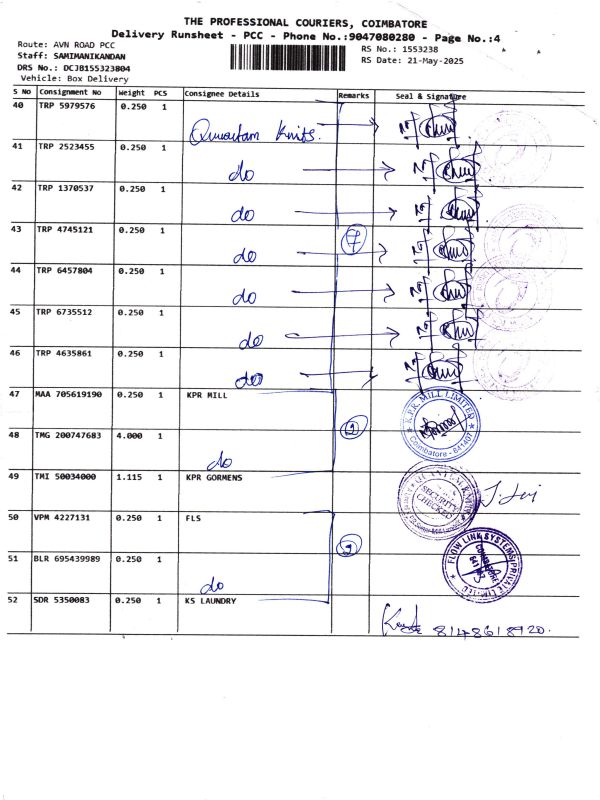 THE PROFESSIONAL COURIERS, COIMBATORE
Delivery Runsheet - PCC - Phone No.:9047080280 - Page No.:4
Route: AVN ROAD PCC
RS No.: 1553238
Staff: SAMIMANIKANDAN
RS Date: 21-May-2025
DRS No.: DCJB155323804
Vehicle: Box Delivery
S No Consignment No Weight PCS Consignee Details Remarks Seal & Signature
40 TRP 5979576 0.250 1
Knits.
41 TRP 2523455 0.250 1
do
42 TRP 1370537 0.250 1
do
43 TRP 4745121 0.250 1
7
do
44 TRP 6457804 0.250 1
do
45 TRP 6735512 0.250 1
do
46 TRP 4635861 0.250 1
do
47 MAA 705619190 0.250 1 KPR MILL
K.P.R. MILL LIMITED
Coimbatore - 641407
2
48 TMG 200747683 4.000 1
do
49 TMI 50034000 1.115 1 KPR GORMENS
SECURITY
CHECKED
50 VPM 4227131 0.250 1 FLS
2
FLOW LINK SYSTEMS PRIVATE LIMITED
COIMBATORE
51 BLR 695439989 0.250 1
do
52 SDR 5350083 0.250 1 KS LAUNDRY
8148618920.